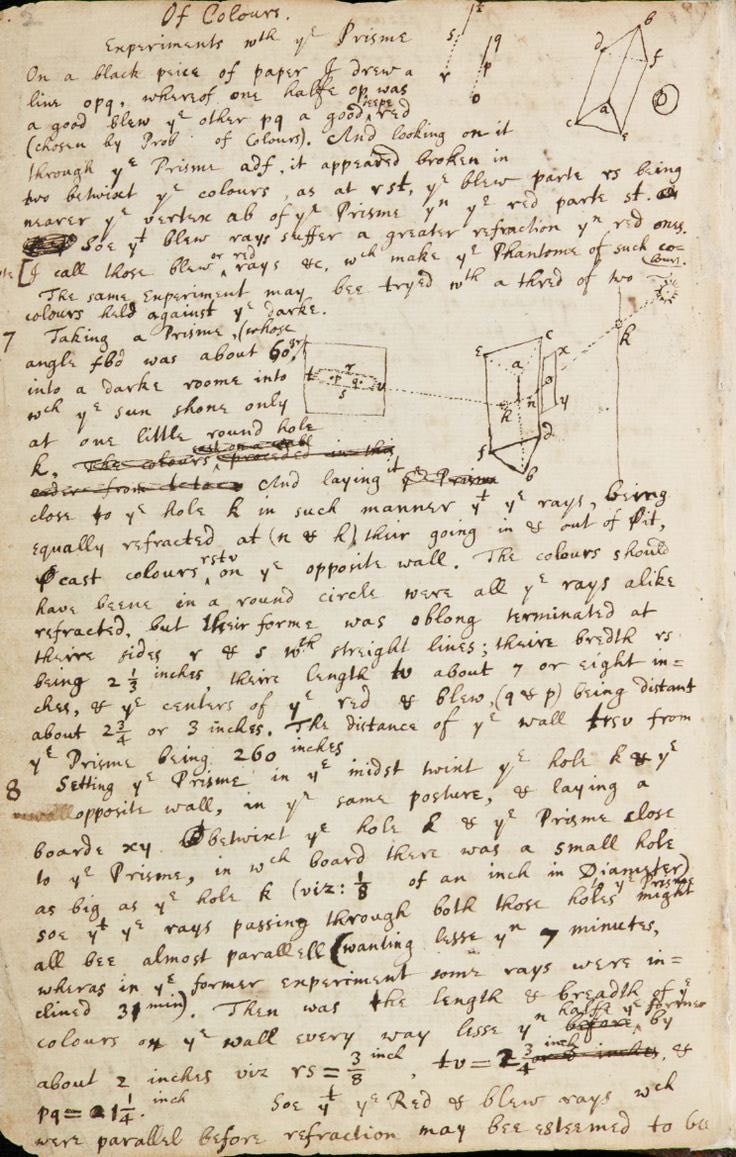 Of Colours.
Experiments wth ye Prisme
On a black peice of paper I drew a
line opq, whereof one halfe op was
a good blew ye other pq a good deepe red
(chosen by Prob of Colours). And looking on it
through ye Prisme adf, it appeared broken in
two betwixt ye colours, as at rst, ye blew parte rs being
nearer ye vertex ab of ye Prisme yn ye red parte st.
Soe yt blew rays suffer a greater refraction yn red ones.
[I call those blew or red rays &c, wch make ye Phantome of such co-
lours.
The same Experiment may bee tryed wth a thred of two
colours held against ye darke.
7 Taking a Prisme, (whose
angle fbd was about 60gr)
into a darke roome into
wch ye sun shone only
at one little round hole
k. And laying it
close to ye hole k in such manner yt ye rays, being
equally refracted at (n & h) their going in & out of it,
cast colours rstv on ye opposite wall. The colours should
have beene in a round circle were all ye rays alike
refracted, but their forme was oblong terminated at
theire sides r & s wth streight lines; theire bredth rs
being 2 1/3 inches theire length tv about 7 or eight in=
ches, & ye centers of ye red & blew, (q & p) being distant
about 2 3/4 or 3 inches. The distance of ye wall trsv from
ye Prisme being 260 inches
8 Setting ye Prisme in ye midst twixt ye hole k & ye
opposite wall, in ye same posture, & laying a
boarde xy betwixt ye hole k & ye Prisme close
to ye Prisme, in wch board there was a small hole
as big as ye hole k (viz: 1/8 of an inch in Diameter)
soe yt ye rays passing through both those holes to ye Prisme might
all bee almost parallell (wanting lesse yn 7 minutes,
wheras in ye former experiment some rays were in=
clined 31 min). Then was the length & breadth of ye
colours on ye wall every way lesse yn halfe ye former by
about 2 inches viz rs = 3/8 inch, tv = 2 3/4 inch, &
pq = 1 1/4 inch. Soe yt ye Red & blew rays wch
were parallel before refraction may bee esteemed to be